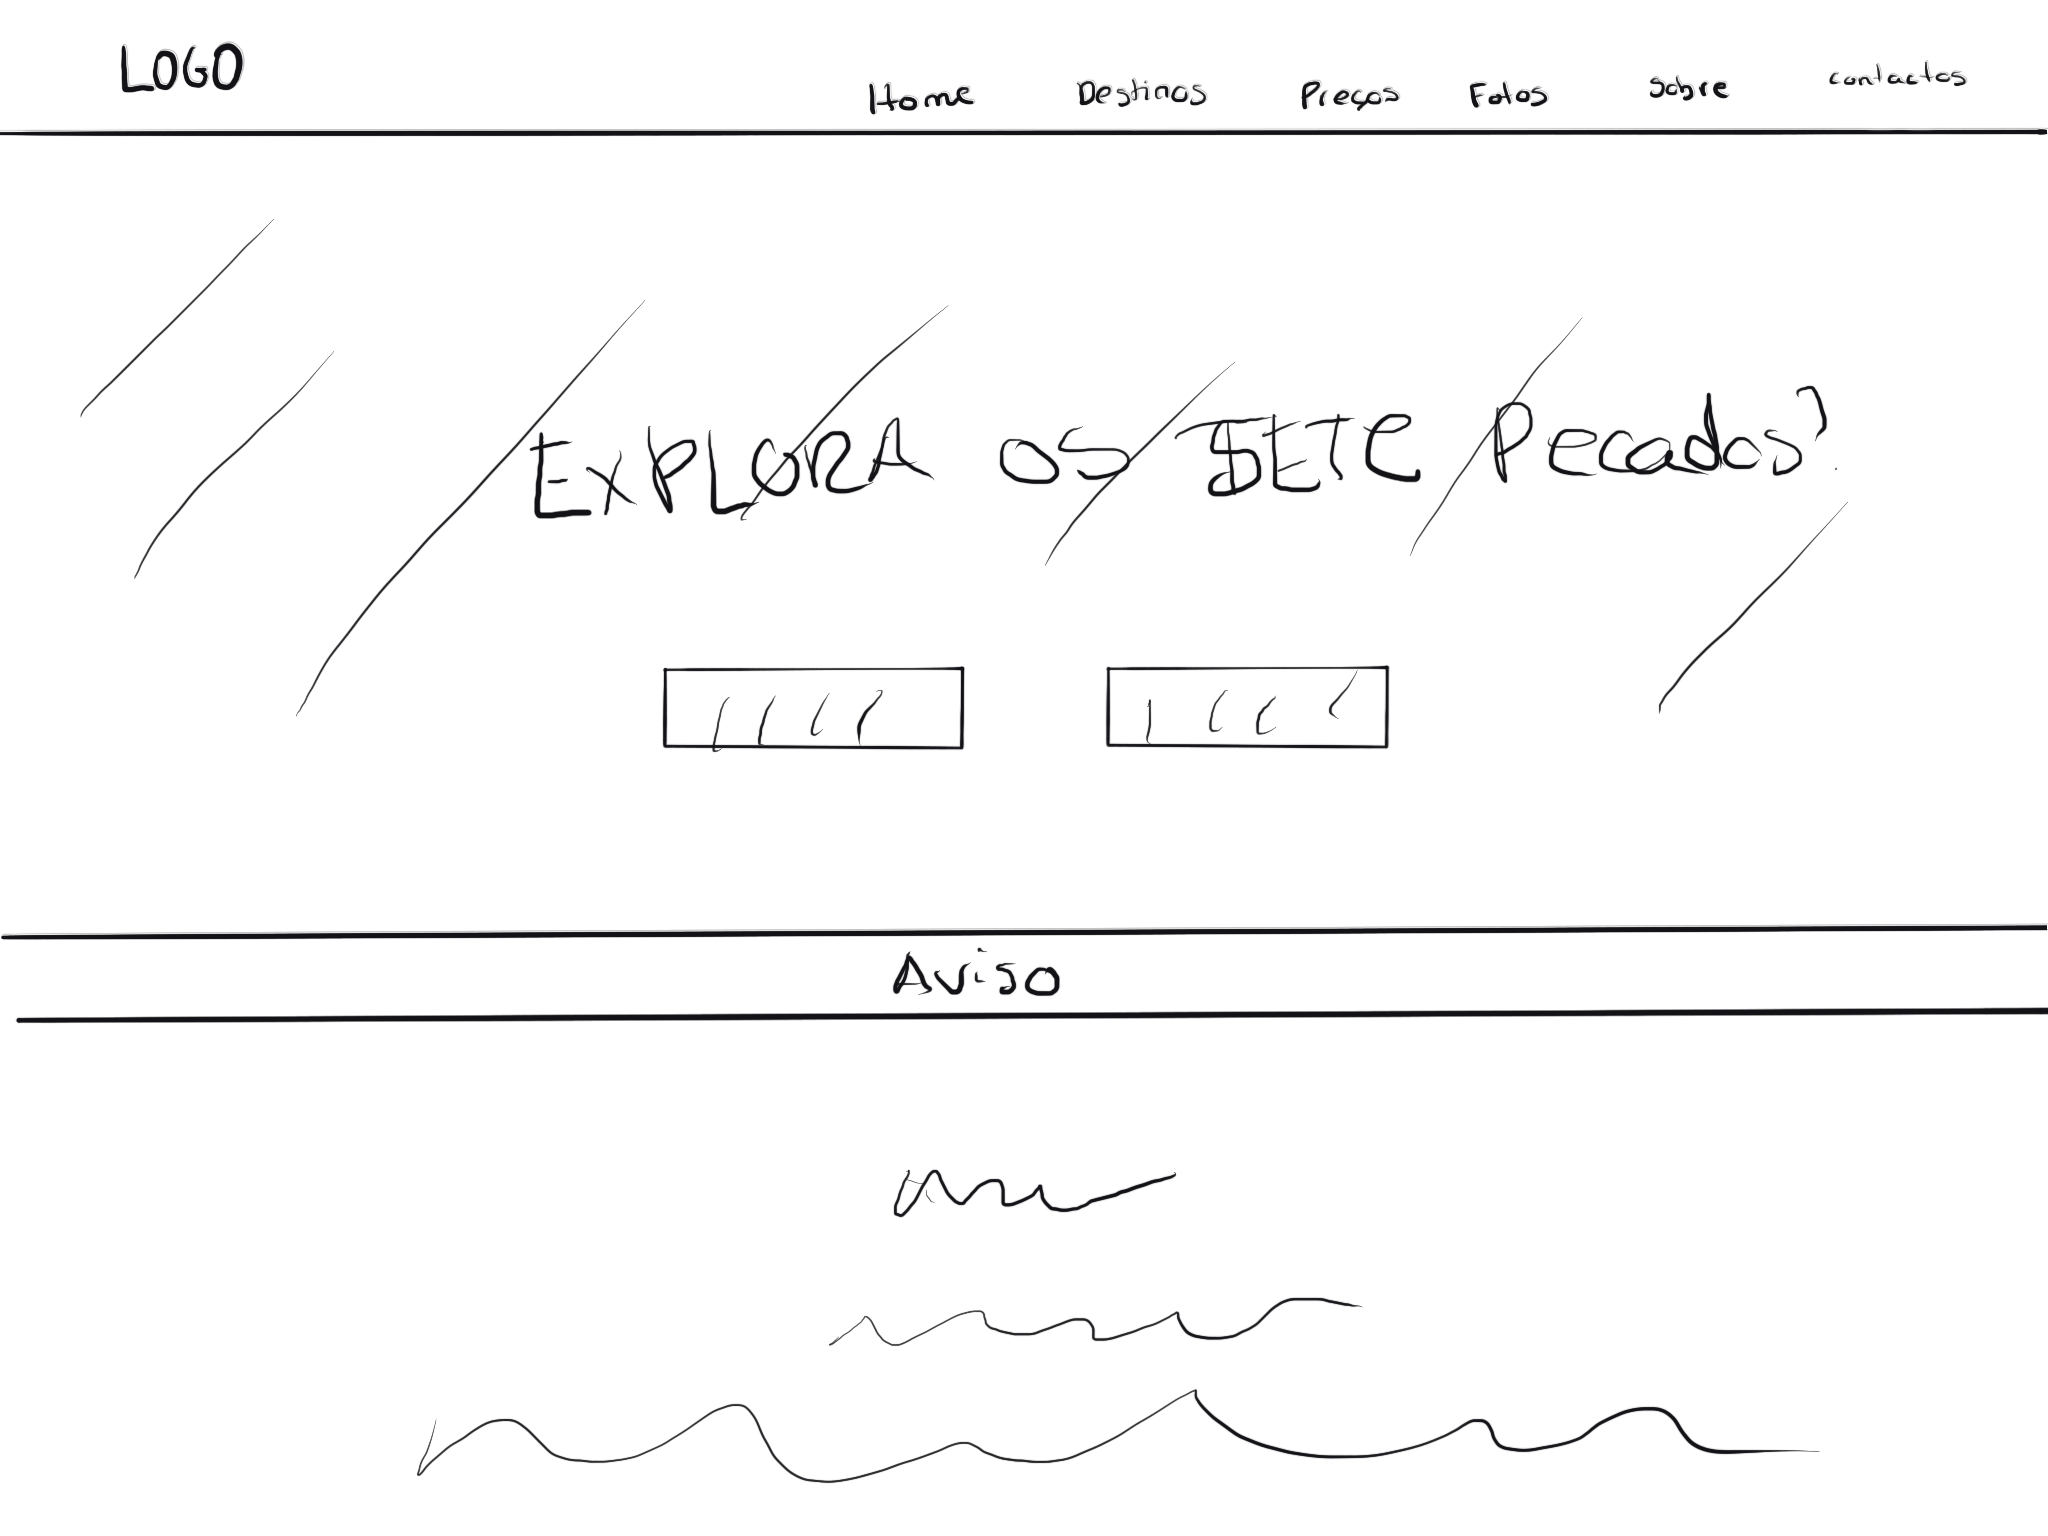 LOGO
Home Destinos Preços Fotos Sobre contactos
EXPLORA OS SETE Pecados?
Aviso